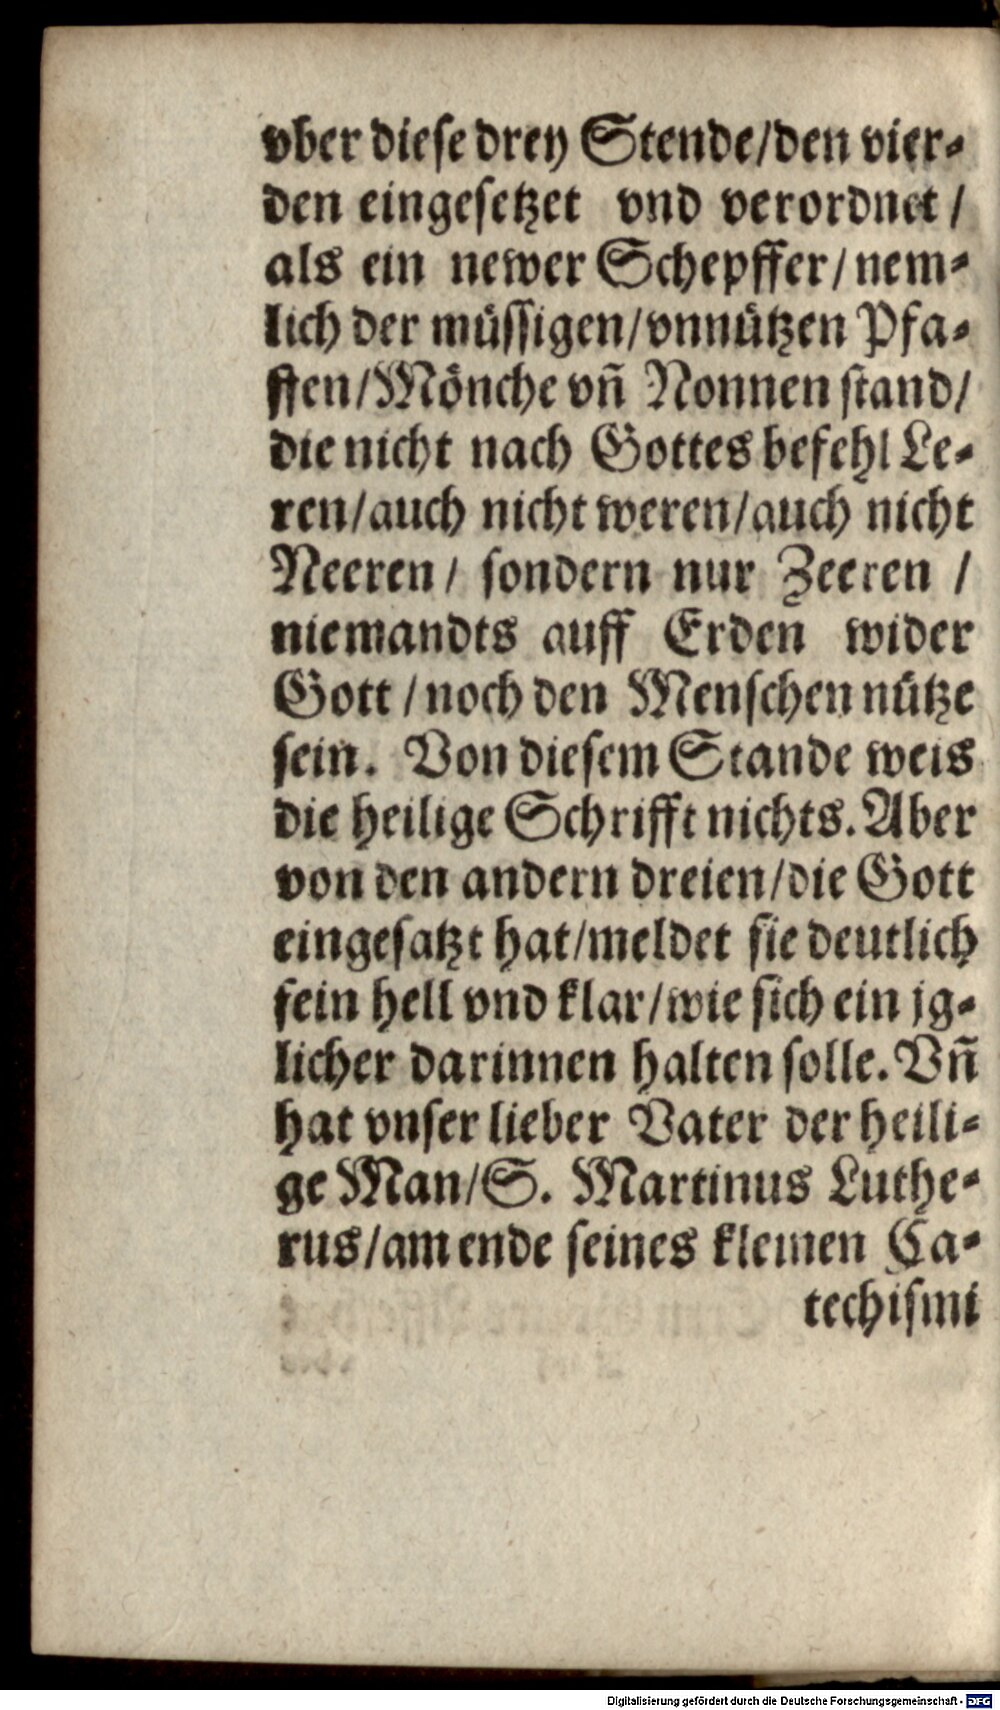 vber diese drey Stende/den vier-
den eingesetzet vnd verordnet /
als ein newer Schepffer/nem-
lich der müssigen/vnnützen Pfa-
ffen/Mönche vñ Nonnen stand/
die nicht nach Gottes befehl Le-
ren/auch nicht weren/auch nicht
Neeren/ sondern nur Zeeren /
niemandts auff Erden wider
Gott /noch den Menschen nütze
sein. Von diesem Stande weis
die heilige Schrifft nichts. Aber
von den andern dreien/die Gott
eingesatzt hat/meldet sie deutlich
fein hell vnd klar/wie sich ein jg-
licher darinnen halten solle. Vñ
hat vnser lieber Vater der heili-
ge Man/S. Martinus Luthe-
rus/am ende seines kleinen Ca-
techismi
Digitalisierung gefördert durch die Deutsche Forschungsgemeinschaft - DFG